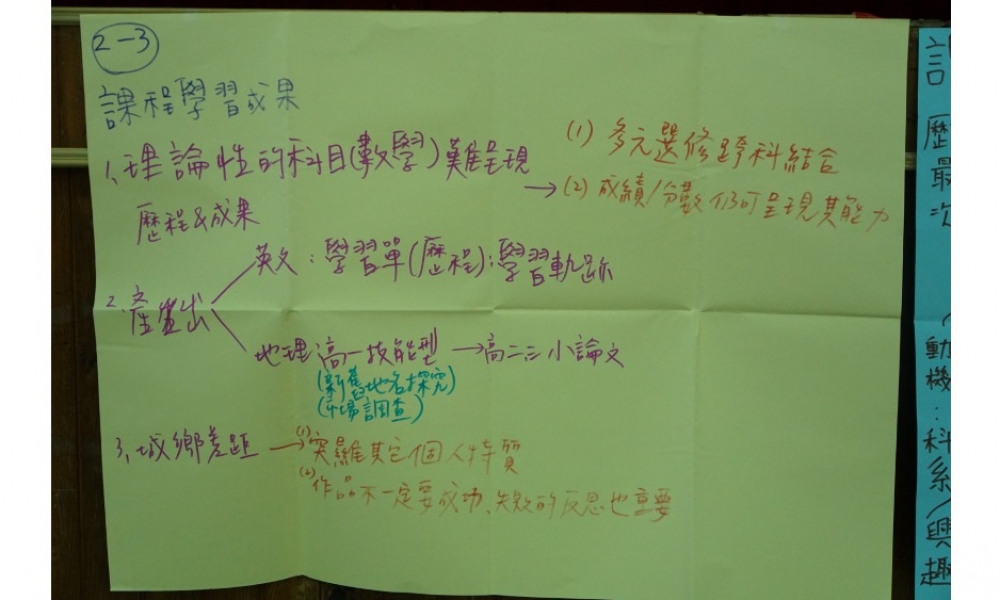 2-3
課程學習成果
1、理論性的科目(數學)難呈現
歷程&成果
→(1) 多元選修跨科結合
(2) 成績/分數仍可呈現其能力
2. 產出
英文:學習單(歷程):學習軌跡
地理 高一技能型→高二三小論文
(新舊地名探究)
(市場調查)
3、城鄉差距
→(1)突顯其它個人特質
(2)作品不一定要成功、失敗的反思也重要
歷
最
次
動機:科系/興趣